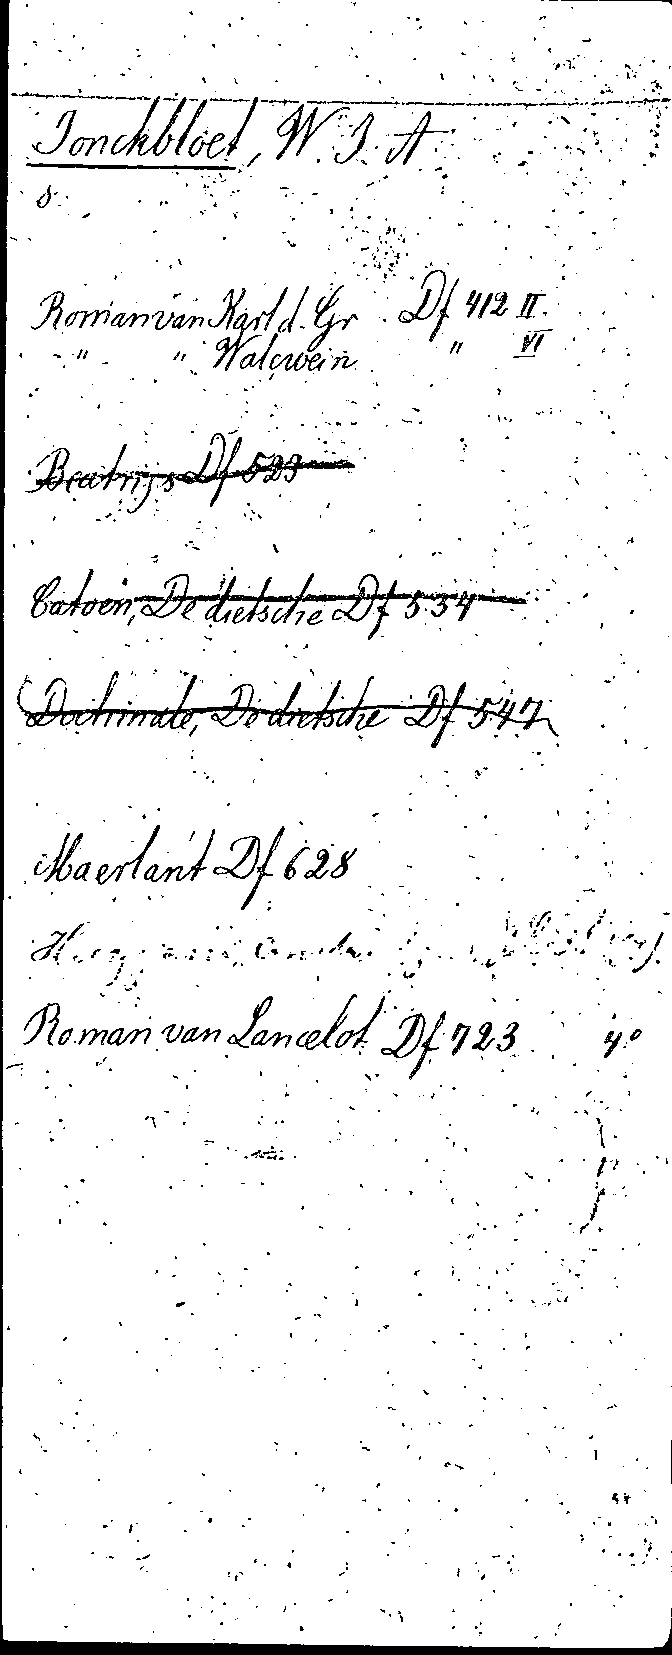 Jonckbloet, W. J. A
s.
Roman van Karl d. Gr. Df 412 II.
" " Walewein " VI
Beatrijs Df 523
Catoen, De dietsche Df 534
Doctrinale, De dietsche Df 547
Maerlant Df 628
Roman van Lancelot Df 723 4°